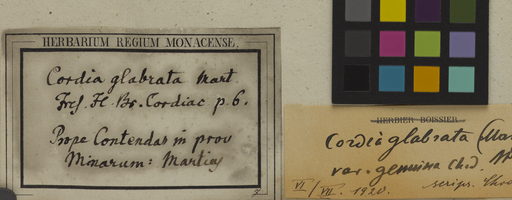 HERBARIUM REGIUM MONACENSE.
Cordia glabrata Mart.
Fres. Fl. Br. Cordiac p. 6.
Prope Contendas in prov
Minarum: Martius
HERBIER-BOISSIER
Cordia glabrata (Mar
var. genuina Chod.
VI/VII. 1920. scrips. Chod